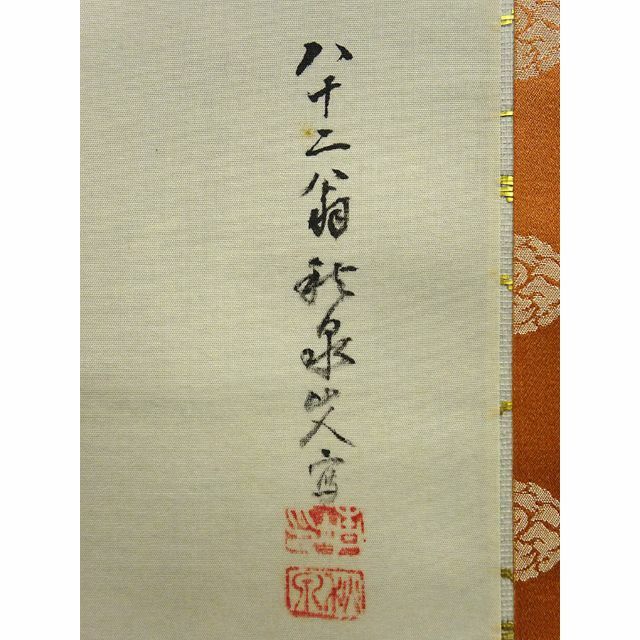 八十二翁秋泉山人寫
秋泉